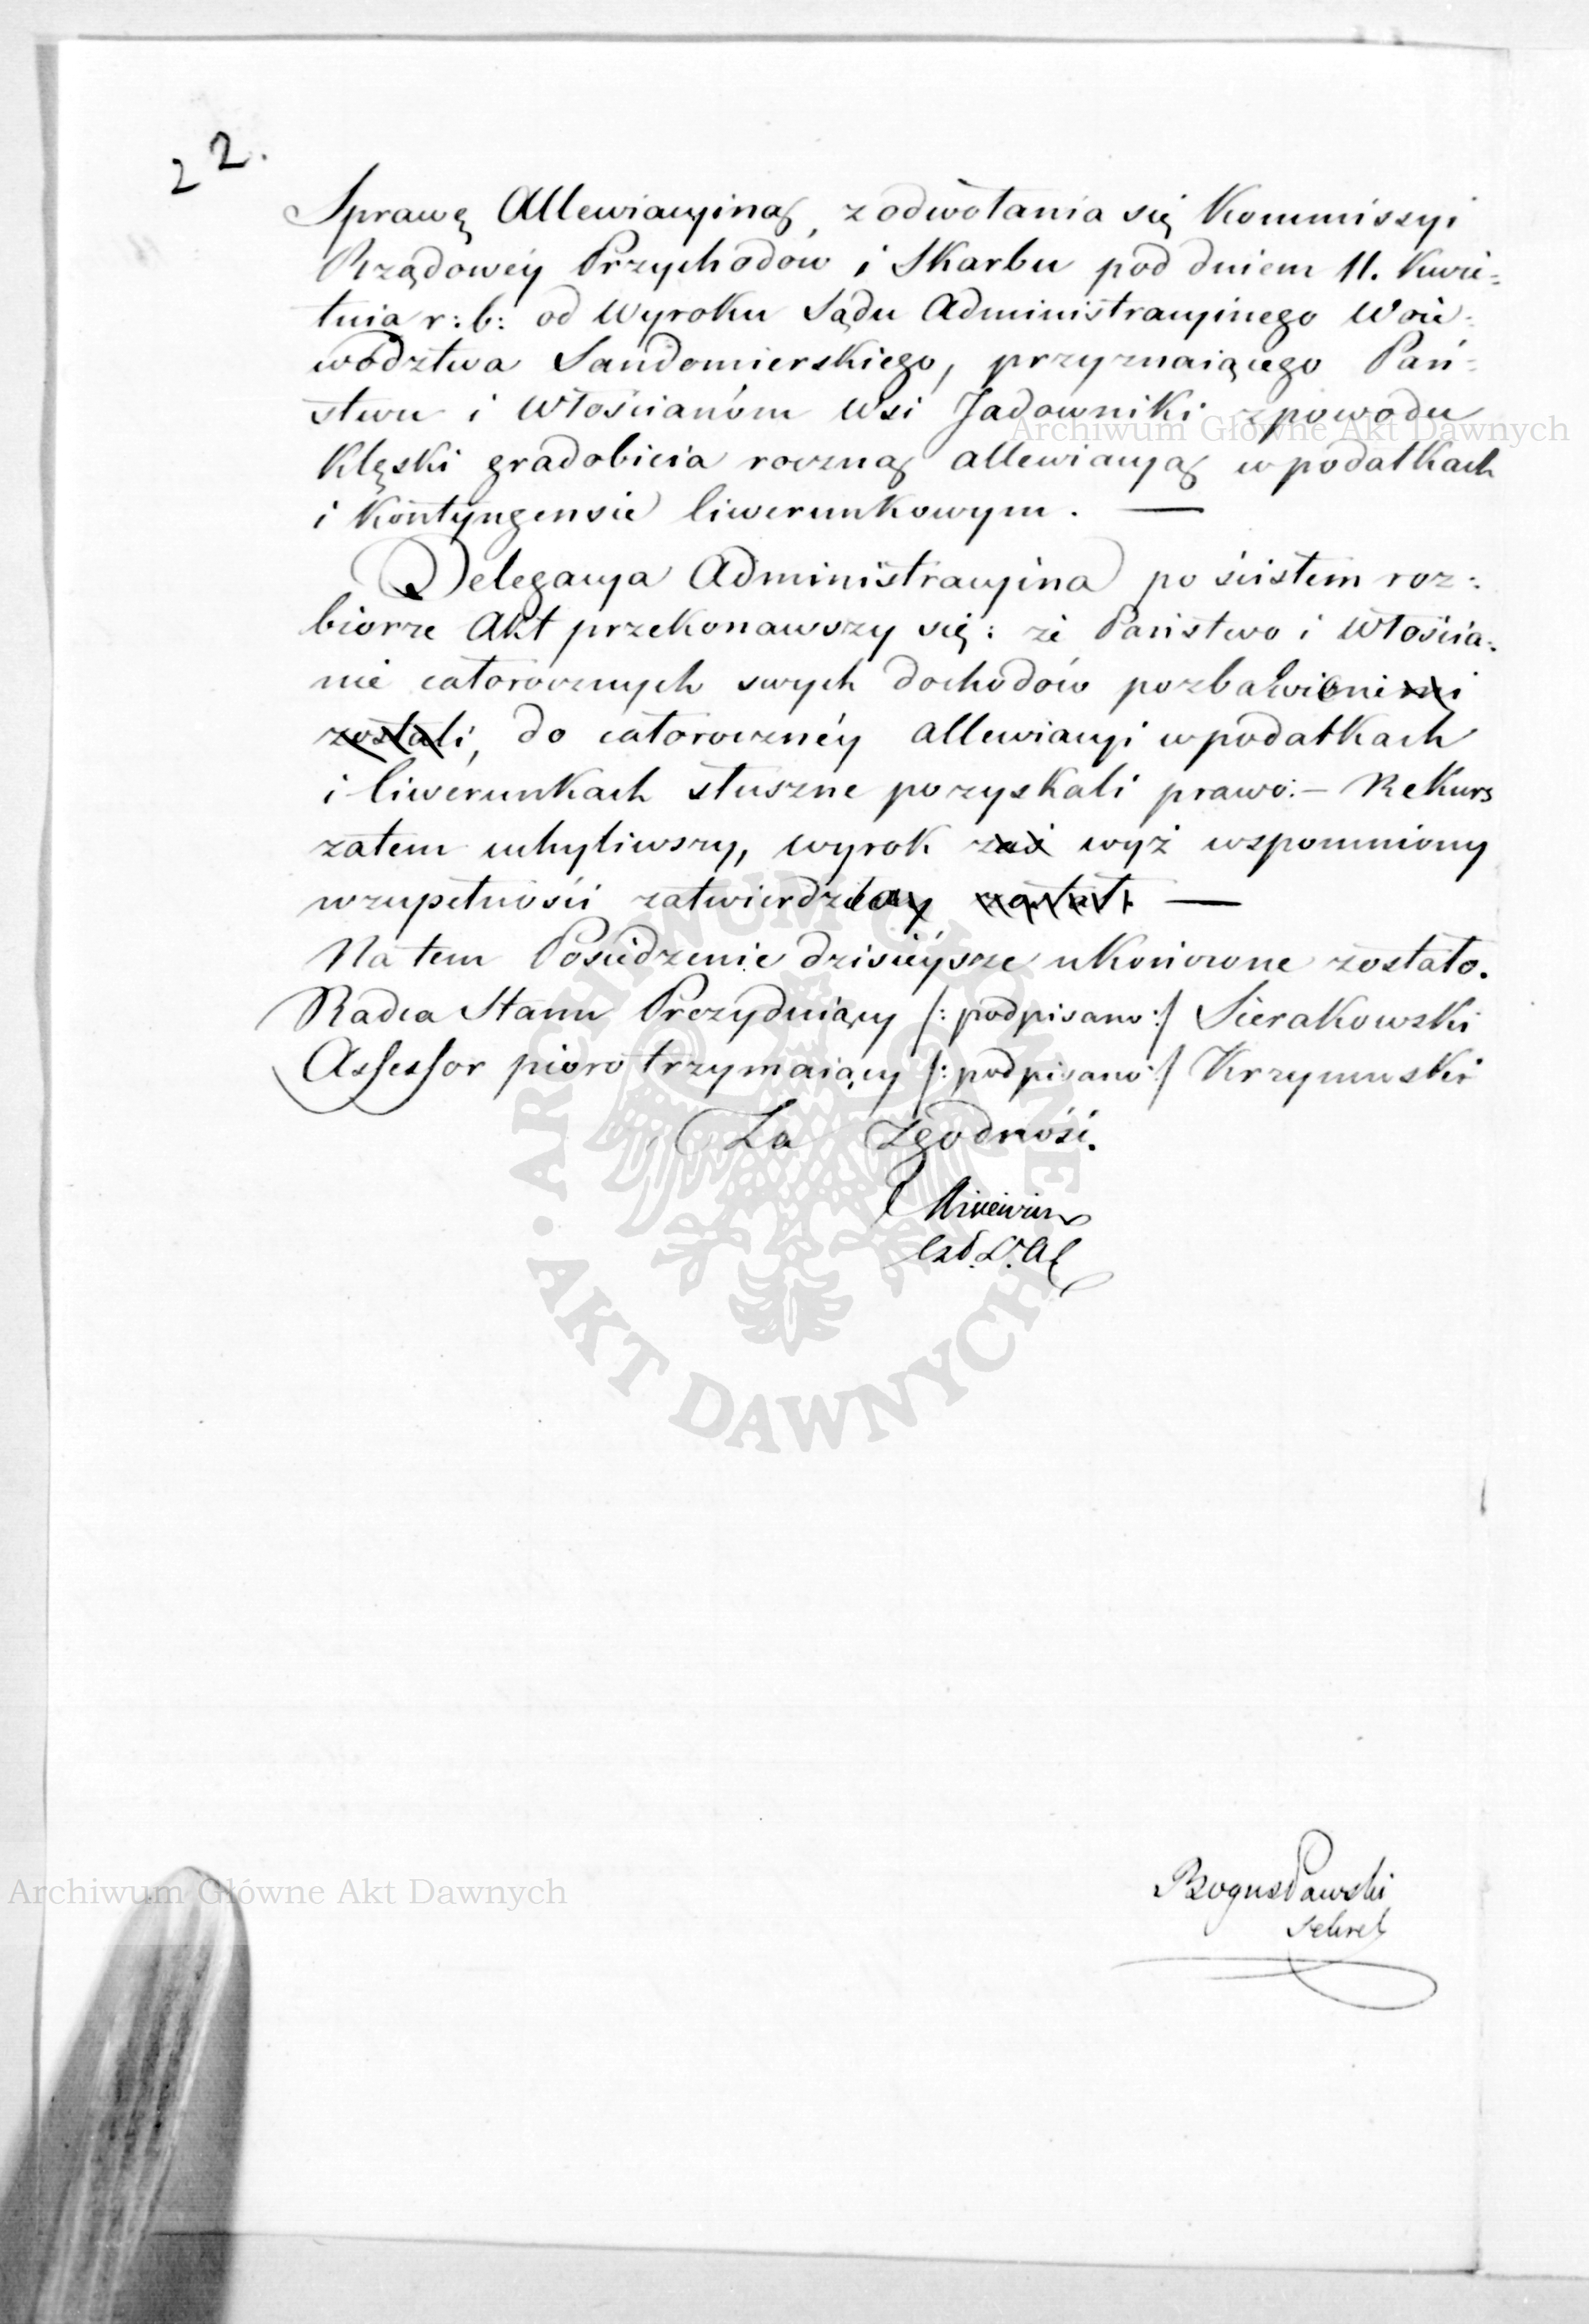 2 2.
Sprawę Allewiacyiną, z odwołania się Kommissyi
Rządowéy Przychodów i Skarbu pod dniem 11. Kwie=
tnia r: b: od Wyroku Sądu Administracyinego Woie=
wództwa Sandomierskiego, przyznaiącego Pań=
stwu i Włościanóm Wsi Jadowniki z powodu
Klęski gradobicia roczną allewiacyą w podatkach
i Kontyngensie liwerunkowym. —
Delegacya Administracyina po ścisłem roz=
biorze Akt przekonawszy się: że Państwo i Włościa=
nie całorocznych swych dochodów pozbawieni
zostali, do całorocznéy allewiacyi w podatkach
i liwerunkach słuszne pozyskali prawo: — Rekurs
zatem uchyliwszy, wyrok zaś wyż wspomniony
w zupełności zatwierdziła został. —
Na tem Posiedzenie dzisiéysze ukończone zostało.
Radca Stanu Prezyduiący /: podpisano :/ Sierakowski
Assessor pióro trzymaiący /: podpisano :/ Krzymuski
Za Zgodność.
Bogusławski
Sekret
Archiwum Główne Akt Dawnych
Archiwum Główne Akt Dawnych
ARCHIWUM GŁÓWNE
AKT DAWNYCH